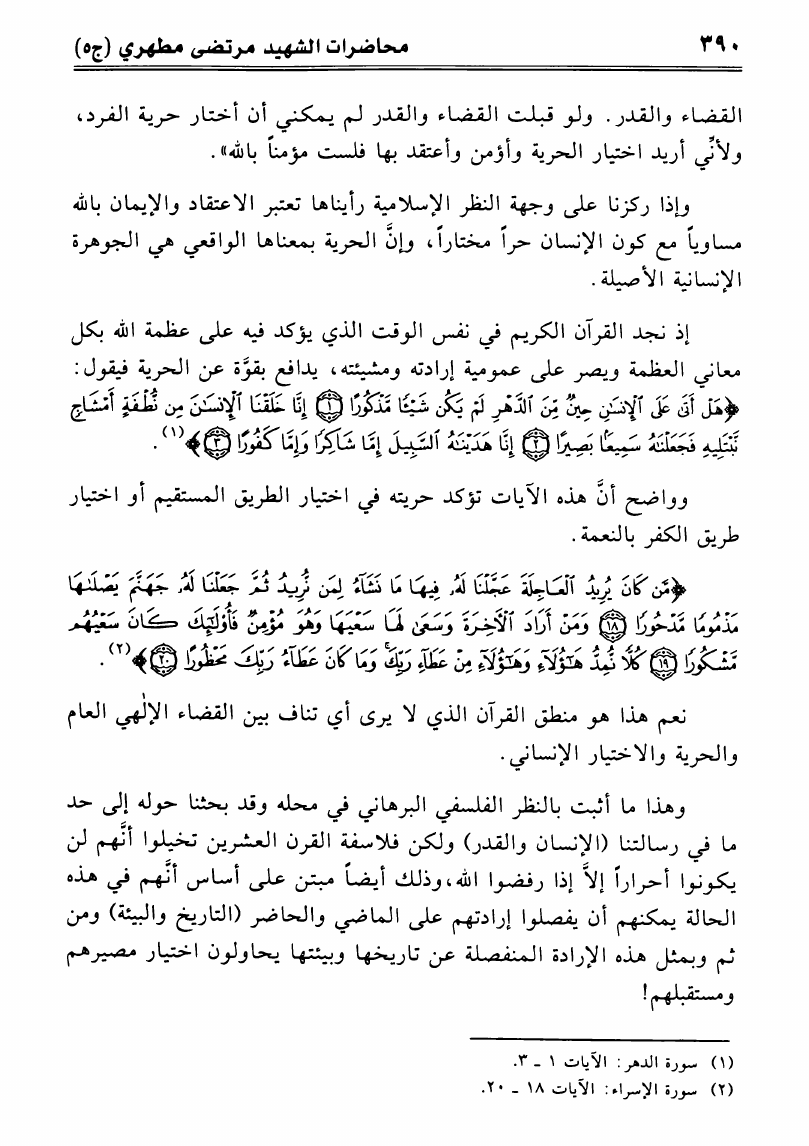 ٣٩٠ محاضرات الشهيد مرتضى مطهري (ج٥)
القضاء والقدر. ولو قبلت القضاء والقدر لم يمكني أن أختار حرية الفرد،
ولأنِّي أريد اختيار الحرية وأؤمن وأعتقد بها فلست مؤمناً بالله».
وإذا ركزنا على وجهة النظر الإسلامية رأيناها تعتبر الاعتقاد والإيمان بالله
مساوياً مع كون الإنسان حراً مختاراً، وإنَّ الحرية بمعناها الواقعي هي الجوهرة
الإنسانية الأصيلة.
إذ نجد القرآن الكريم في نفس الوقت الذي يؤكد فيه على عظمة الله بكل
معاني العظمة ويصر على عمومية إرادته ومشيئته، يدافع بقوَّة عن الحرية فيقول:
﴿هَلْ أَتَىٰ عَلَى ٱلْإِنسَٰنِ حِينٌ مِّنَ ٱلدَّهْرِ لَمْ يَكُن شَيْـًٔا مَّذْكُورًا ۝١ إِنَّا خَلَقْنَا ٱلْإِنسَٰنَ مِن نُّطْفَةٍ أَمْشَاجٍ
نَّبْتَلِيهِ فَجَعَلْنَٰهُ سَمِيعًۢا بَصِيرًا ۝٢ إِنَّا هَدَيْنَٰهُ ٱلسَّبِيلَ إِمَّا شَاكِرًا وَإِمَّا كَفُورًا ۝٣﴾(١).
وواضح أنَّ هذه الآيات تؤكد حريته في اختيار الطريق المستقيم أو اختيار
طريق الكفر بالنعمة.
﴿مَّن كَانَ يُرِيدُ ٱلْعَاجِلَةَ عَجَّلْنَا لَهُۥ فِيهَا مَا نَشَآءُ لِمَن نُّرِيدُ ثُمَّ جَعَلْنَا لَهُۥ جَهَنَّمَ يَصْلَىٰهَا
مَذْمُومًا مَّدْحُورًا ۝١٨ وَمَنْ أَرَادَ ٱلْأَخِرَةَ وَسَعَىٰ لَهَا سَعْيَهَا وَهُوَ مُؤْمِنٌ فَأُو۟لَٰٓئِكَ كَانَ سَعْيُهُم
مَّشْكُورًا ۝١٩ كُلًّا نُّمِدُّ هَٰٓؤُلَآءِ وَهَٰٓؤُلَآءِ مِنْ عَطَآءِ رَبِّكَ ۚ وَمَا كَانَ عَطَآءُ رَبِّكَ مَحْظُورًا ۝٢٠﴾(٢).
نعم هذا هو منطق القرآن الذي لا يرى أي تناف بين القضاء الإلٰهي العام
والحرية والاختيار الإنساني.
وهذا ما أثبت بالنظر الفلسفي البرهاني في محله وقد بحثنا حوله إلى حد
ما في رسالتنا (الإنسان والقدر) ولكن فلاسفة القرن العشرين تخيلوا أنَّهم لن
يكونوا أحراراً إلاَّ إذا رفضوا الله،وذلك أيضاً مبتن على أساس أنَّهم في هذه
الحالة يمكنهم أن يفصلوا إرادتهم على الماضي والحاضر (التاريخ والبيئة) ومن
ثم وبمثل هذه الإرادة المنفصلة عن تاريخها وبيئتها يحاولون اختيار مصيرهم
ومستقبلهم!
(١) سورة الدهر: الآيات ١ - ٣.
(٢) سورة الإسراء: الآيات ١٨ - ٢٠.